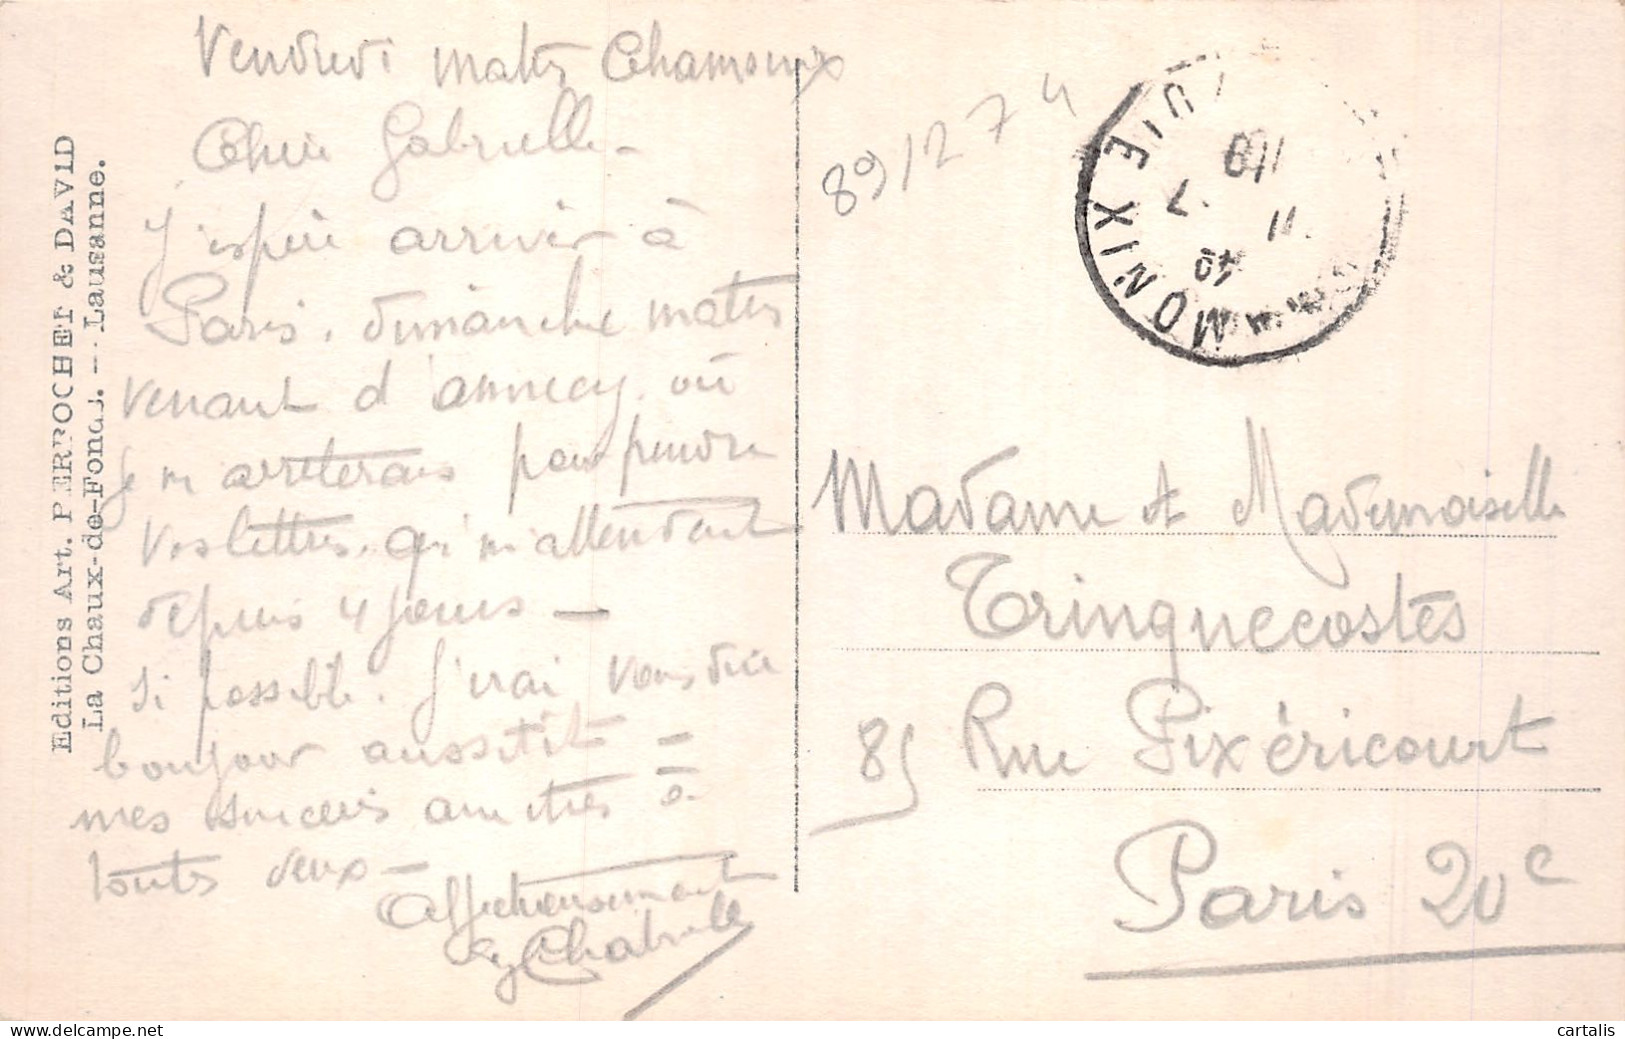 Vendredi matin Chamonix
Chère Gabrielle -
J'espère arriver à
Paris, dimanche matin
venant d'annecy, où
je m'arrêterais pour prendre
vos lettres, qui m'attendent
depuis 4 jours -
Si possible, j'irai vous dire
bonjour aussitôt -
mes sincères amitiés à
toutes deux -
Affectueusement
Editions Art. PERROCHET & DAVID
La Chaux-de-Fonds. - Lausanne.
89/274
MONIX
18
11 . 7
40
Madame et Mademoiselle
Trinquecostes
85 Rue Pixéricourt
Paris 20e
cartalis